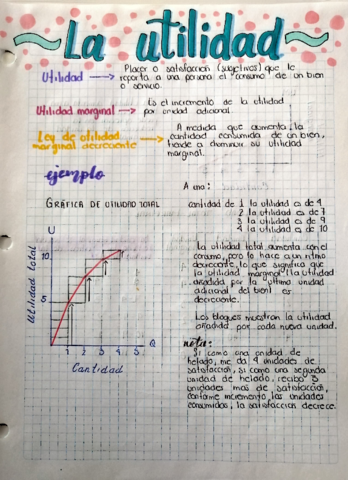 La utilidad
Utilidad → Placer o satisfacción (subjetivos) que le
reporta a una persona el consumo de un bien
o servicio.
Utilidad marginal → Es el incremento de la utilidad
por unidad adicional.
Ley de utilidad
marginal decreciente → A medida que aumenta la
cantidad consumida de un bien,
tiende a disminuir su utilidad
marginal.
ejemplo
GRÁFICA DE UTILIDAD TOTAL
U
10
5
Utilidad total
1 2 3 4 5 Q
Cantidad
cantidad de 1 la utilidad es de 4
2 la utilidad es de 7
3 la utilidad es de 9
4 la utilidad es de 10
La utilidad total aumenta con el
consumo, pero lo hace a un ritmo
decreciente, lo que significa que
la utilidad marginal (la utilidad
añadida por la última unidad
adicional del bien) es
decreciente.
Los bloques muestran la utilidad
añadida por cada nueva unidad.
nota:
Si como una unidad de
helado, me da 4 unidades de
satisfacción, si como una segunda
unidad de helado, recibo 3
unidades más de satisfacción,
conforme incremento las unidades
consumidas, la satisfacción decrece.